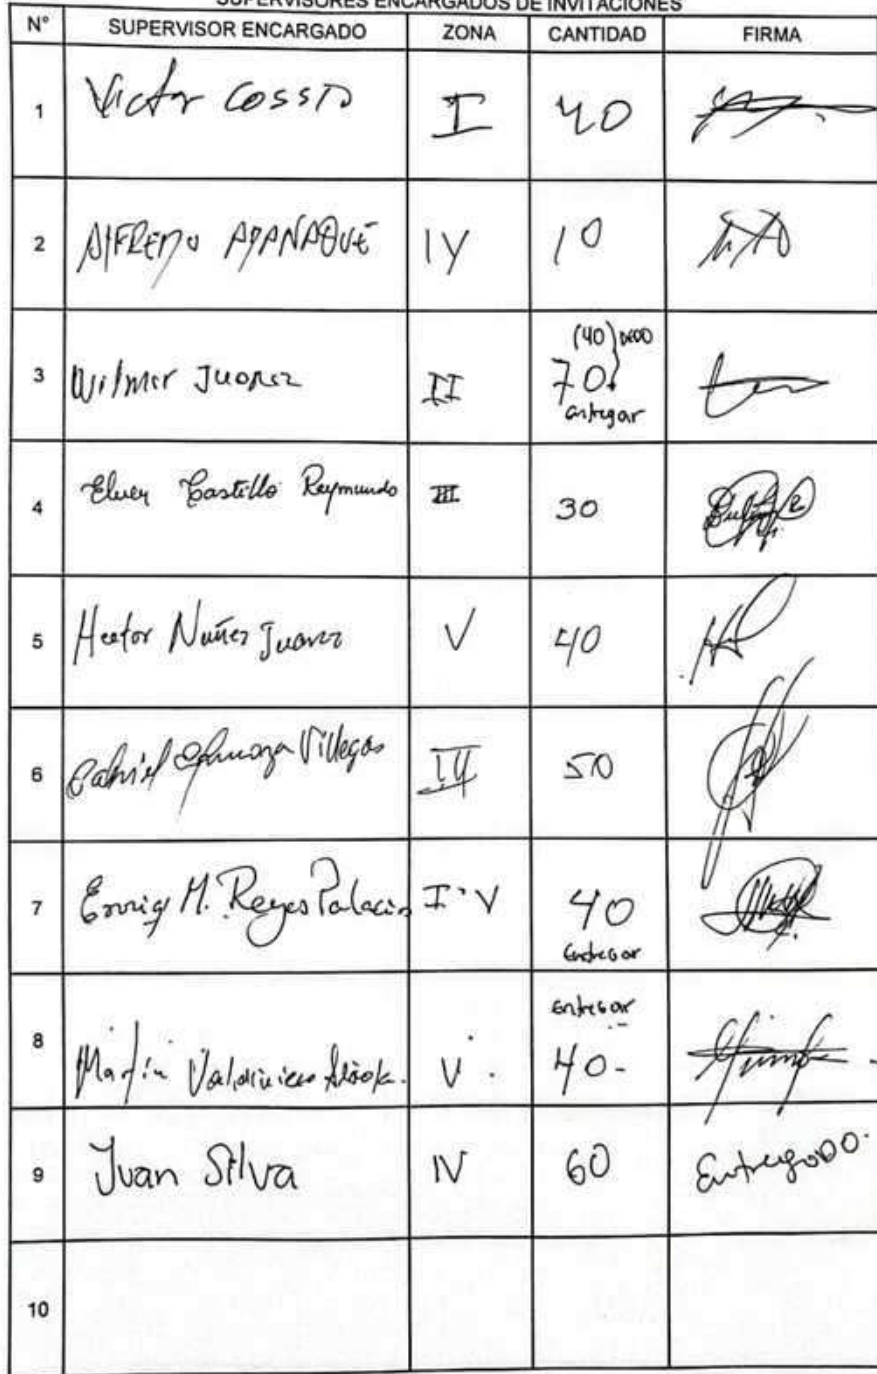 SUPERVISORES ENCARGADOS DE INVITACIONES
N° SUPERVISOR ENCARGADO ZONA CANTIDAD FIRMA
1 Victor Cossio I 40
2 AlFREDO APANAQUÉ IV 10
(40) DEDO
3 Wilmer Juarez II 70
entregar
4 Elver Castillo Reymundo III 30
5 Hector Nuñez Juarez V 40
6 Gabriel Villegas 50
7 M. Reyes Palacios I V 40
Entregar
entregar
8 Martin V. 40-
9 Juan Silva IV 60 EntregaDO.
10